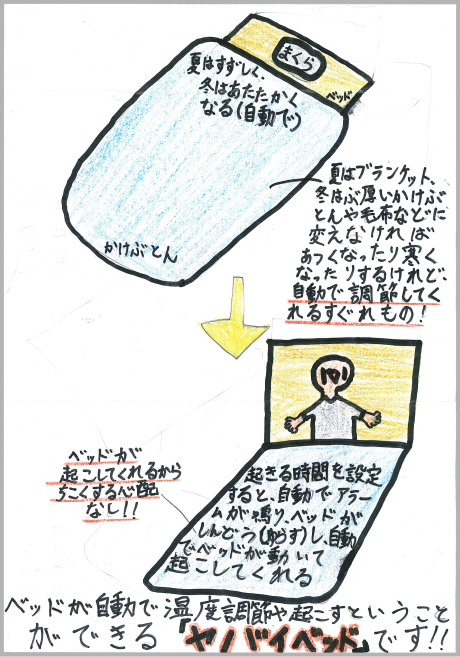 まくら
ベッド
夏はすずしく、
冬はあたたかく
なる(自動で)
かけぶとん
夏はブランケット、
冬はぶ厚いかけぶ
とんや毛布などに
変えなければ
あつくなったり寒く
なったりするけれど、
自動で調節してく
れるすぐれもの!
ベッドが
起こしてくれるから
ちこくする心配
なし!!
起きる時間を設定
すると、自動でアラー
ムが鳴り、ベッドが
しんどう(ゆらす)し、自動
でベッドが動いて
起こしてくれる
ベッドが自動で温度調節や起こすということ
ができる「ヤバイベッド」です!!